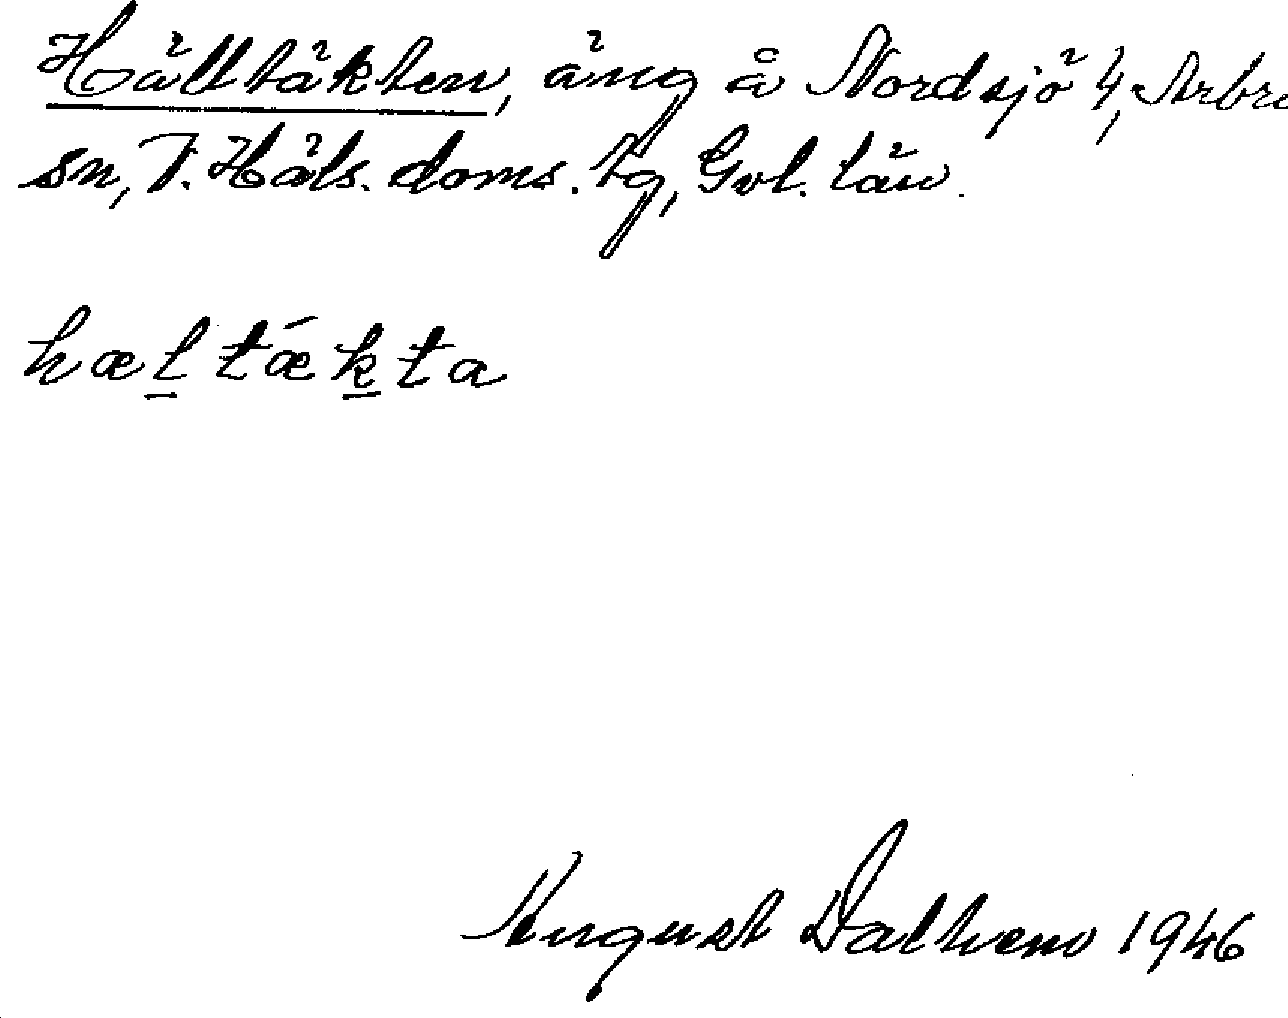 Hälltäkten, äng å Nordsjö 4, Arbrå
sn, V. Häls. doms. tg, Gvl. län.
hæl tǽkta
August Dalhem 1946